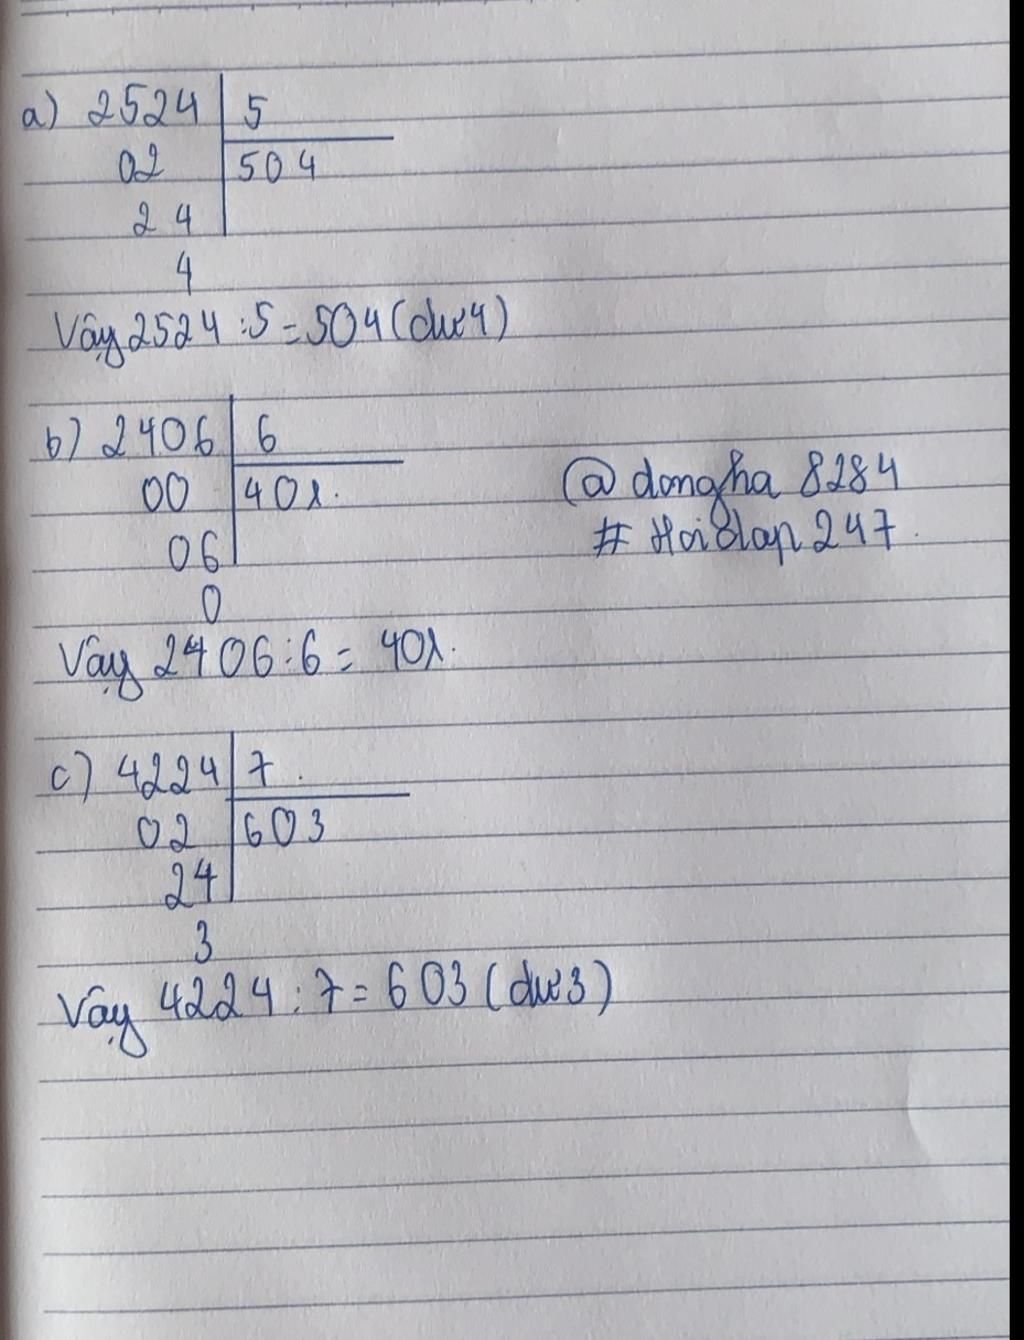 a) 2524 5
02 504
24
4
Vậy 2524 : 5 = 504 (dư 4)
b) 2406 6
00 401.
06
0
@dongha 8284
# Hoidap 247.
Vậy 2406 : 6 = 401.
c) 4224 7.
02 603
24
3
Vậy 4224 : 7 = 603 (dư 3)